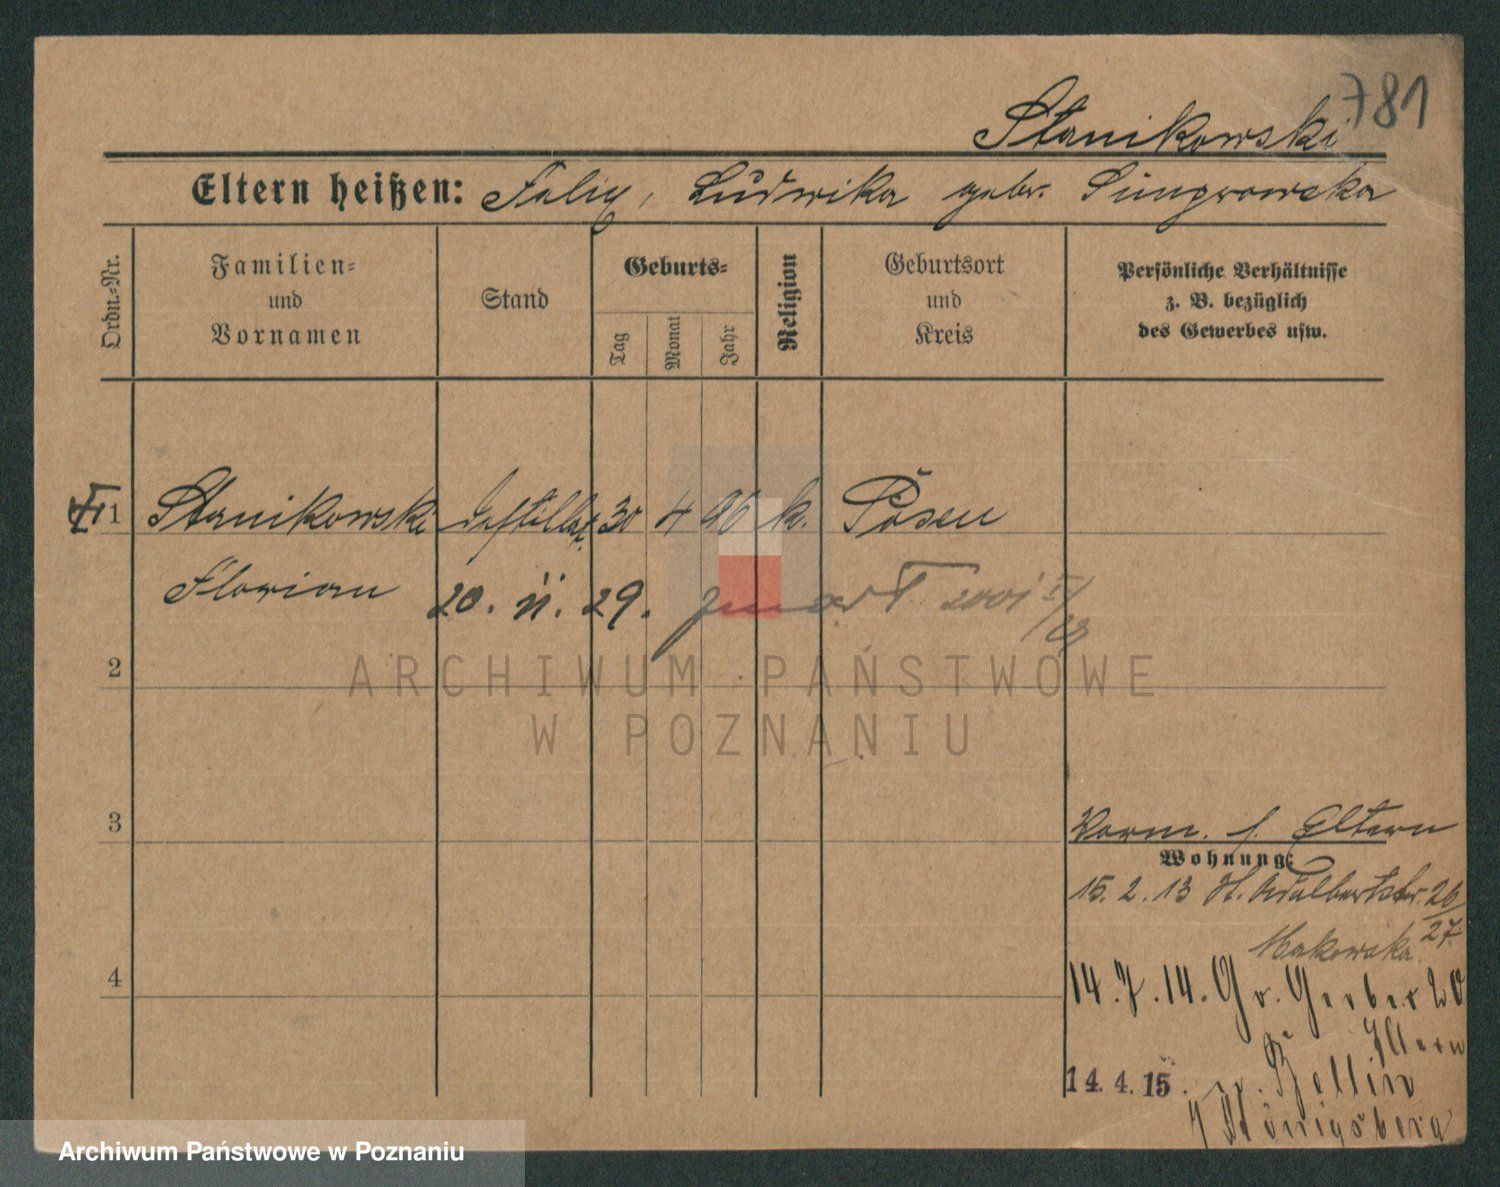 781
Stanikowski
Eltern heißen: Felix, Ludwika geb.
Ordn.-Nr.
Familien-
und
Vornamen
Stand
Geburts-
Tag
Monat
Jahr
Religion
Geburtsort
und
Kreis
Persönliche Verhältnisse
z. B. bezüglich
des Gewerbes usw.
1 Stanikowski 30 4 96 k. Posen
Florian
20. 11. 29. zmarł 2001
2
ARCHIWUM PAŃSTWOWE
W POZNANIU
3
Vorm. s. Eltern
Wohnung:
15. 2. 13 St. Adalbertstr. 26/27
Makowska
4
14. 7. 14. Gr. Gerber 20
Eltern
14. 4. 15.
Königsberg
Archiwum Państwowe w Poznaniu